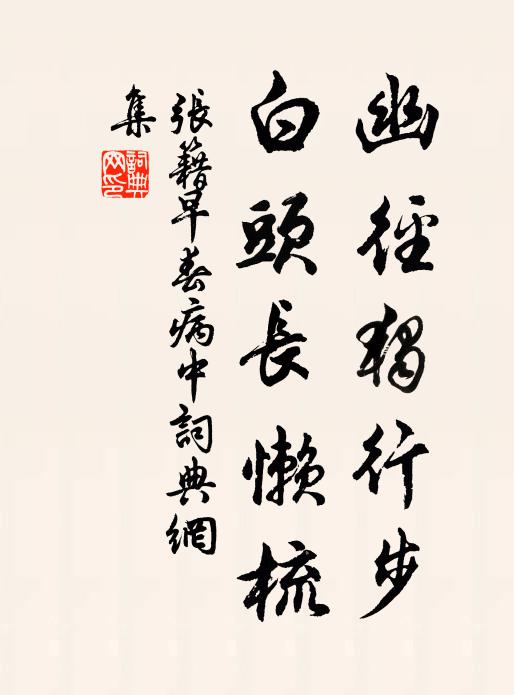 幽徑獨行步
白頭長懶梳
張籍早春病中詞典網
集
詞典
网印